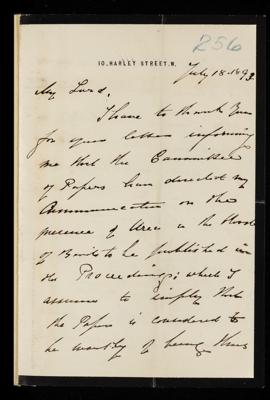 256
10, HARLEY STREET, W.
July 18. 1893.
My Lord,
I have to thank you
for your letter informing
me that the Committee
of Papers have directed my
Communication on the
presence of Urea in the blood
of Birds to be published in
the Proceedings; which I
assume to imply that
the Paper is considered to
be worthy of being thus